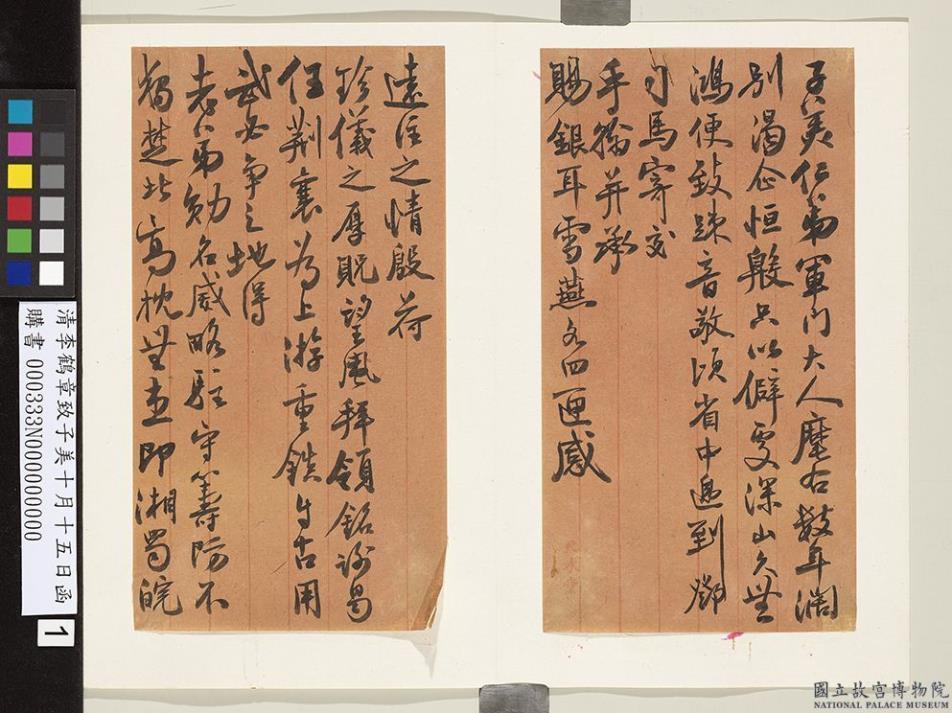 子美仁弟軍門大人麾右數年濶
別渴企恒殷只以僻處深山久無
鴻便致踈音敬頃省中遞到鄧
司馬寄交
手翰并承
賜銀耳雪燕各四匣感
遠注之情殷荷
珍儀之厚貺望風拜領銘謝曷
任荊襄為上游重鎮自古用
武必爭之地得
老弟勛名威略駐守籌防不
獨楚北高枕無虞即湘蜀皖
清李鶴章致子美十月十五日函
購書 000333N000000000
1
國立故宮博物院
NATIONAL PALACE MUSEUM